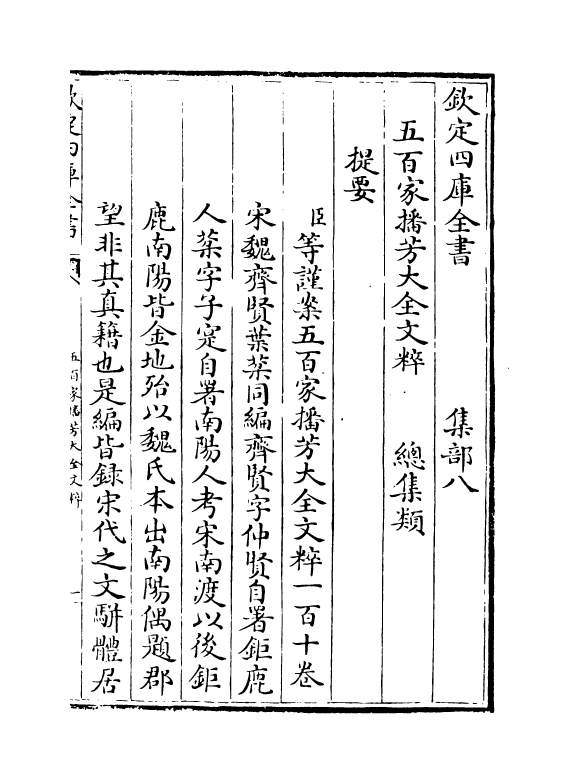 欽定四庫全書 集部八
五百家播芳大全文粹 總集類
提要
臣等謹案五百家播芳大全文粹一百十卷
宋魏齊賢葉棻同編齊賢字仲賢自署鉅鹿
人棻字子寔自署南陽人考宋南渡以後鉅
鹿南陽皆金地殆以魏氏本出南陽偶題郡
望非其真籍也是編皆録宋代之文駢體居
欽定四庫全書
五百家播芳大全文粹
一